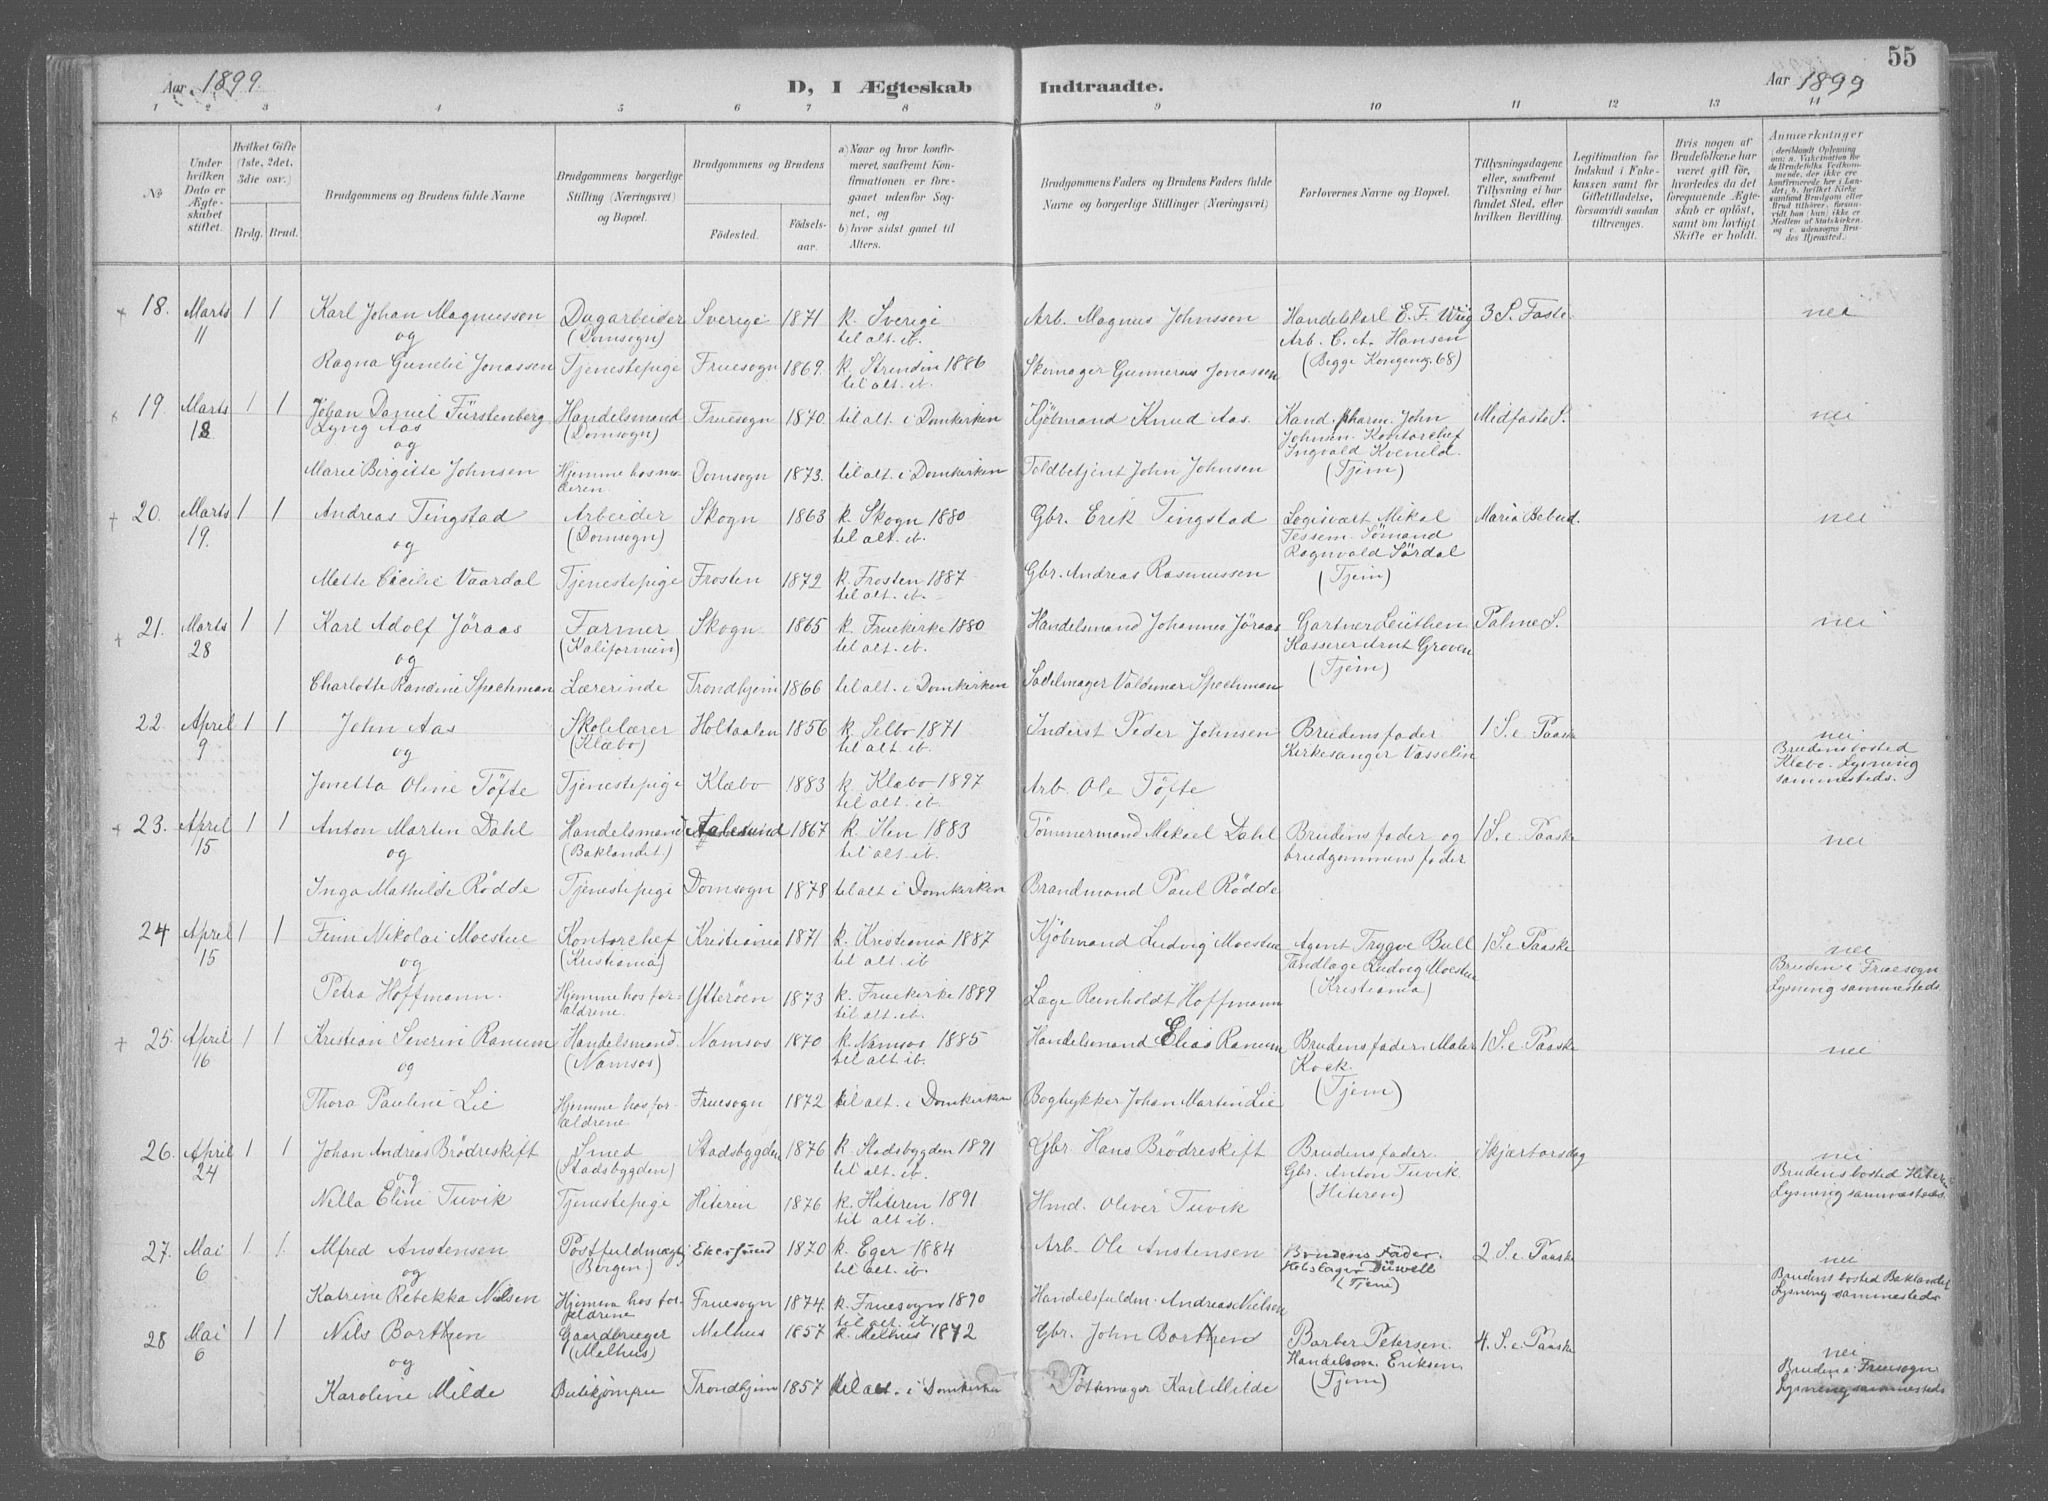 55
Aar 1899.
D, I Ægteskab Indtraadte.
Aar 1899
1 2 3 4 5 6 7 8 9 10 11 12 13 14
No.
Under hvilken Dato er Ægteskabet stiftet.
Hvilket Gifte (1ste, 2det, 3die osv.)
Brdg. Brud.
Brudgommens og Brudens fulde Navne
Brudgommens borgerlige Stilling (Næringsvei) og Bopæl.
Brudgommens og Brudens
Födested. Födselsaar.
a) Naar og hvor konfirmeret, saafremt Konfirmationen er foregaaet udenfor Sognet, og
b) hvor sidst gaaet til Alters.
Brudgommens Faders og Brudens Faders fulde Navne og borgerlige Stillinger (Næringsvei)
Forlovernes Navne og Bopæl.
Tillysningsdagene eller, saafremt Tillysning ei har fundet Sted, efter hvilken Bevilling.
Legitimation for Indskud i Enkekassen samt for Giftetilladelse, forsaavidt saadan tiltrænges.
Hvis nogen af Brudefolkene har været gift før, hvorledes da det foregaaende Ægteskab er opløst, samt om lovligt Skifte er holdt.
Anmærkninger
18. Marts 11 1 1 Karl Johan Magnussen Dagarbeider (Domsogn) Sverige 1871 k. Sverige til alt. ib. Arb. Magnus Johnsson Handelskarl E. F. Wiig Arb. C. A. Hansen (Begge Kongensg. 68) 3 S. Faste nei
og
Ragna Gunelie Jonassen Tjenestepige Fruesogn 1869. k. Strinden 1886 til alt. ib. Skomager Gunnerius Jonassen
19. Marts 18 1 1 Johan Daniel Fürstenberg Lyng Aas Handelsmand (Domsogn) Fruesogn 1870 til alt. i Domkirken Kjöbmand Knud Aas. Kand. pharm. John Johnsen. Kontorchef Ingvald Kvenild. (Tjem) Midfaste S. nei
og
Marie Birgitte Johnsen Hjemme hos moderen. Domsogn 1873. til alt. i Domkirken Toldbetjent John Johnsen
20. Marts 19. 1 1 Andreas Tingstad Arbeider (Domsogn) Skogn 1863 k. Skogn 1880 til alt. ib. Gbr. Erik Tingstad Logisvært Mikal Tessem. Sömand Ragnvald Sördal (Tjem) Maria Bebud. nei
og
Mette Cicilie Vaardal Tjenestepige Frosten 1872 k. Frosten 1887 til alt. ib. Gbr. Andreas Rasmussen
21. Marts 28 1 1 Karl Adolf Jöraas Farmer (Kalifornien) Skogn 1865 k. Fruekirke 1880 til alt. ib. Handelsmand Johannes Jöraas Gartner Leüthen Kasserer Arnt Groven (Tjem) Palme S. nei
og
Charlotte Randine Spechman Lærerinde Trondhjem 1866 til alt. i Domkirken Sadelmager Valdemar Spechman
22. April 9 1 1 John Aas Skolelærer (Klæbo) Holtaalen 1856 k. Selbo 1871 til alt. ib. Inderst Peder Johnsen Brudens fader Kirkesanger Vasselin 1 S. e. Paaske nei Brudens bosted Klæbo. Lysning sammesteds.
og
Jonetta Oline Töfte Tjenestepige Klæbo 1883 k. Klæbo 1897 til alt. ib. Arb. Ole Töfte
23. April 15 1 1 Anton Martin Dahl Handelsmand (Baklandet) Aalesund 1867 k. Ilen 1883 til alt. ib. Tömmermand Mikael Dahl Brudens fader og brudgommens fader 1 S. e. Paaske nei
og
Inga Mathilde Rödde Tjenestepige Domsogn 1878 til alt i Domkirken Brandmand Paul Rödde
24 April 15 1 1 Finn Nikolai Moestue Kontorchef (Kristiania) Kristiania 1871 k. Kristiania 1887 til alt. ib Kjöbmand Ludvig Moestue Agent Trygve Bull Tandlæge Ludvig Moestue (Kristiania) 1 S. e. Paaske nei Bruden i Fruesogn Lysning sammesteds.
og
Petra Hoffmann. Hjemme hos forældrene. Ytteröen 1873 k. Fruekirke 1889 til alt. ib. Læge Reinholdt Hoffmann
25. April 16 1 1 Kristian Severin Ranum Handelsmand (Namsos) Namsos 1870 k. Namsos 1885 til alt. ib. Handelsmand Elias Ranum Brudens fader. Maler Kock. (Tjem) 1 S. e. Paaske nei
og
Thora Pauline Lie Hjemme hos forældrene. Fruesogn 1872 til alt. i Domkirken Bogtrykker Johan Martin Lie
26. April 24 1 1 Johan Andreas Brödreskift Smed (Stadsbygden) Stadsbygden 1876 k. Stadsbygden 1891 til alt. ib. Gbr. Hans Brödreskift Brudens fader. Gbr. Anton Tuvik. (Hiteren) Skjærtorsdag nei Brudens bosted Hiteren Lysning sammesteds.
og
Nella Eline Tuvik Tjenestepige Hiteren 1876 k. Hiteren 1891 til alt ib. Hmd. Oliver Tuvik
27. Mai 6 1 1 Alfred Anstensen Postfuldmægtig (Bergen) Ekersund 1870 k. Eger 1884 til alt. ib. Arb. Ole Anstensen Brudens Fader. Hebslager Düwell (Tjem) 2 S. e. Paaske nei Brudens bosted Baklandet Lysning sammesteds
og
Katrine Rebekka Nielsen Hjemme hos forældrene Fruesogn 1874. k. Fruesogn 1890 til alt. ib. Handelsfuldm. Andreas Nielsen
28 Mai 6 1 1 Nils Borthen Gaardbruger (Melhus) Melhus 1857 k. Melhus 1872 Gbr. John Borthen Barber Petersen. Handelsm. Eriksen. (Tjem) 4. S. e. Paaske nei Bruden i Fruesogn Lysning sammesteds
og
Karoline Milde Butikjomfru Trondhjem 1857 til alt. i Domkirken Pottemager Karl Milde